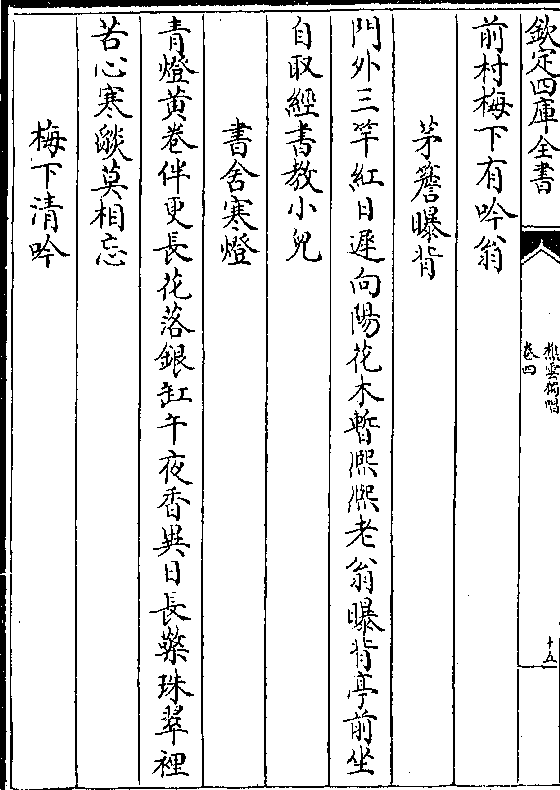 欽定四庫全書
樵雲獨唱
卷四
十五
前村梅下有吟翁
茅簷曝背
門外三竿紅日遲向陽花木暫熈熈老翁曝背亭前坐
自取經書教小兒
書舍寒燈
青燈黃卷伴更長花落銀缸午夜香異日長檠珠翠裡
苦心寒燄莫相忘
梅下清吟